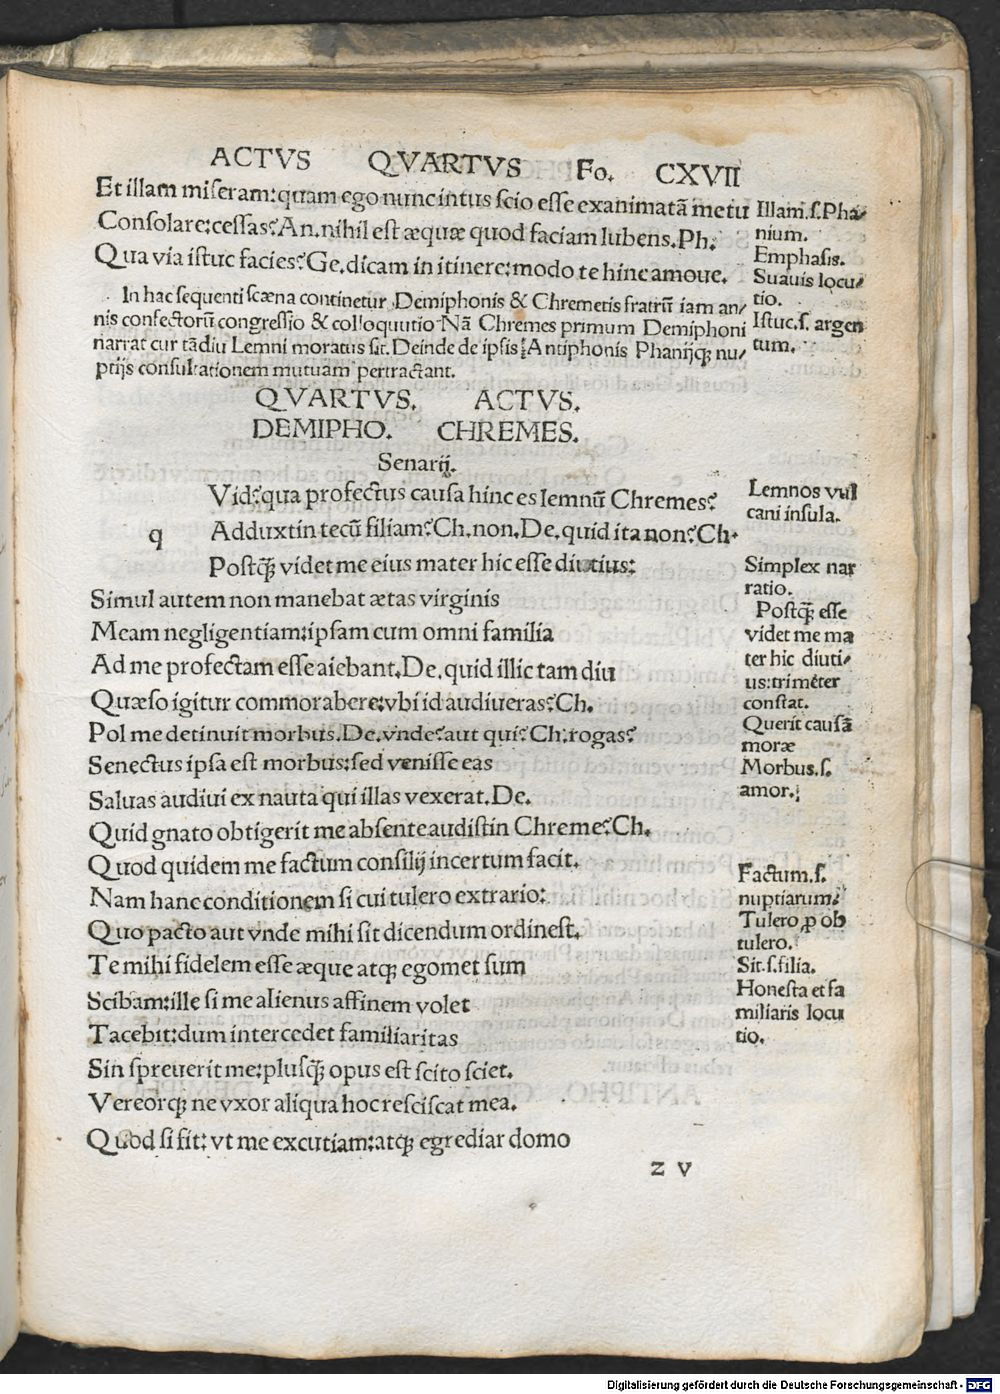 ACTVS QVARTVS Fo. CXVII
Et illam miſeram: quam ego nunc intus ſcio eſſe exanimatã metu
Conſolare: ceſſas? An. nihil eſt æquæ quod faciam lubens. Ph.
Qua via iſtuc facies? Ge. dicam in itinere: modo te hinc amoue.
Illam. ſ. Pha⸗
nium.
Emphaſis.
Suauis locu⸗
tio.
Iſtuc. ſ. argen
tum.
In hac ſequenti ſcæna continetur Demiphonis & Chremetis fratrũ iam an⸗
nis confectorũ congreſſio & colloquutio Nã Chremes primum Demiphoni
narrat cur tãdiu Lemni moratus ſit. Deinde de ipſis Antiphonis Phanijqꝫ nu⸗
ptijs conſultationem mutuam pertractant.
QVARTVS. ACTVS.
DEMIPHO. CHREMES.
Senarij.
q
Vid? qua profectus cauſa hinc es lemnũ Chremes?
Adduxtin tecũ filiam? Ch. non. De. quid ita non? Ch.
Poſtqꝫ̃ videt me eius mater hic eſſe diutius:
Simul autem non manebat ætas virginis
Meam negligentiam: ipſam cum omni familia
Ad me profectam eſſe aiebant. De. quid illic tam diu
Quæſo igitur commorabere: vbi id audiueras? Ch.
Pol me detinuit morbus. De. vnde? aut qui? Ch: rogas?
Senectus ipſa eſt morbus: ſed veniſſe eas
Saluas audiui ex nauta qui illas vexerat. De.
Quid gnato obtigerit me abſente audiſtin Chreme? Ch.
Quod quidem me factum conſilij incertum facit.
Nam hanc conditionem ſi cui tulero extrario:
Quo pacto aut vnde mihi ſit dicendum ordineſt.
Te mihi fidelem eſſe æque atqꝫ egomet ſum
Scibam: ille ſi me alienus affinem volet
Tacebit: dum intercedet familiaritas
Sin ſpreuerit me: pluſqꝫ̃ opus eſt ſcito ſciet.
Vereorqꝫ ne vxor aliqua hoc reſciſcat mea.
Quod ſi fit: vt me excutiam: atqꝫ egrediar domo
Lemnos vul
cani inſula.
Simplex nar
ratio.
Poſtqꝫ̃ eſſe
videt me ma
ter hic diuti⸗
us: trimẽter
conſtat.
Querit cauſã
moræ
Morbus. ſ.
amor.
Factum. ſ.
nuptiarum:
Tulero ꝓ ob
tulero.
Sit. ſ. filia.
Honeſta et fa
miliaris locu
tio.
z v
Digitalisierung gefördert durch die Deutsche Forschungsgemeinschaft - DFG